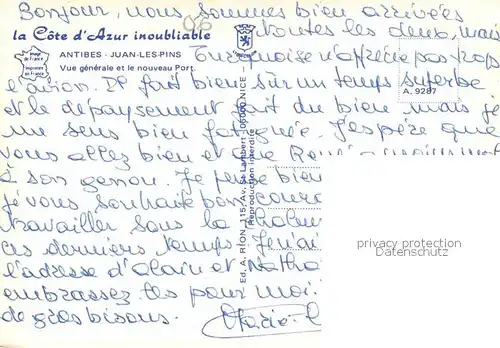 Bonjour, nous sommes bien arrivées
toutes les deux, mais
la Côte d'Azur inoubliable
ANTIBES - JUAN-LES-PINS
Vue générale et le nouveau Port.
Turquoise n'apprécie pas trop
l'avion. Il fait bien sûr un temps superbe
A. 9287
et le dépaysement fait du bien mais je
me sens bien fatiguée. J'espère que
vous allez bien et que René
à son genou. Je pense bien
je vous souhaite bon courage
travailler sous la chaleur
ces derniers temps - Je n'ai
l'adresse d'Alain et Natha
embrassez les pour moi.
de gros bisous.
Ed. A. RION, 115, Av. St-Lambert - 06000 NICE
Reproduction interdite
privacy protection
Datenschutz